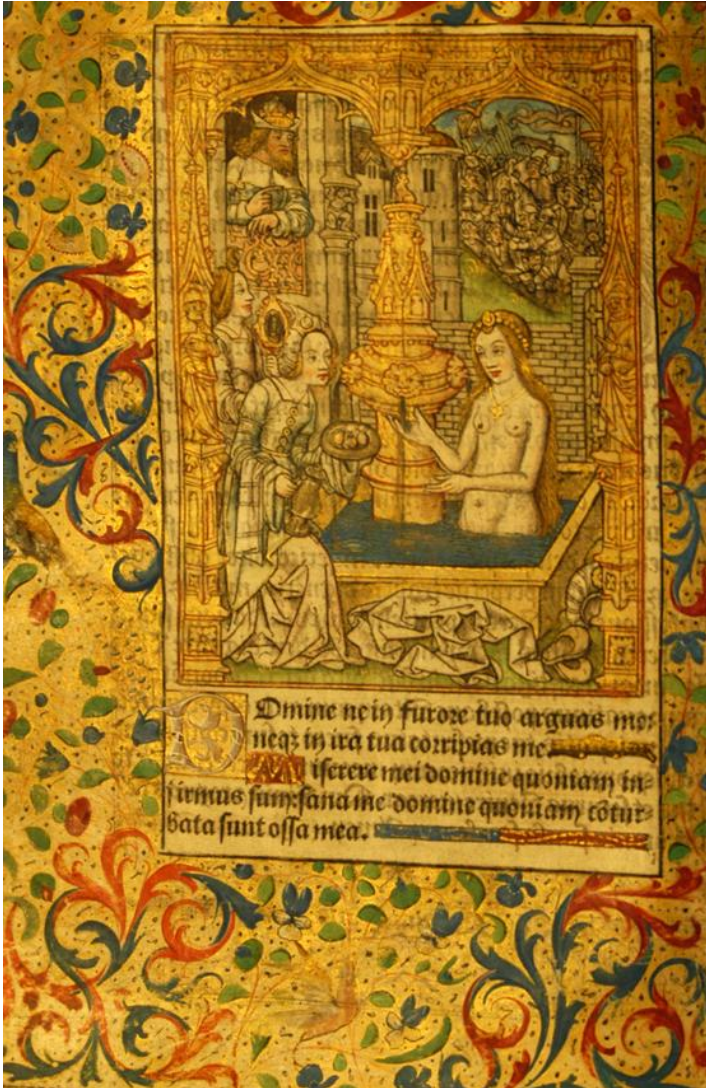 Domine ne in furore tuo arguas me:
neqz in ira tua corripias me
Miserere mei domine quoniam in-
firmus sum: sana me domine quoniam cōtur-
bata sunt ossa mea.